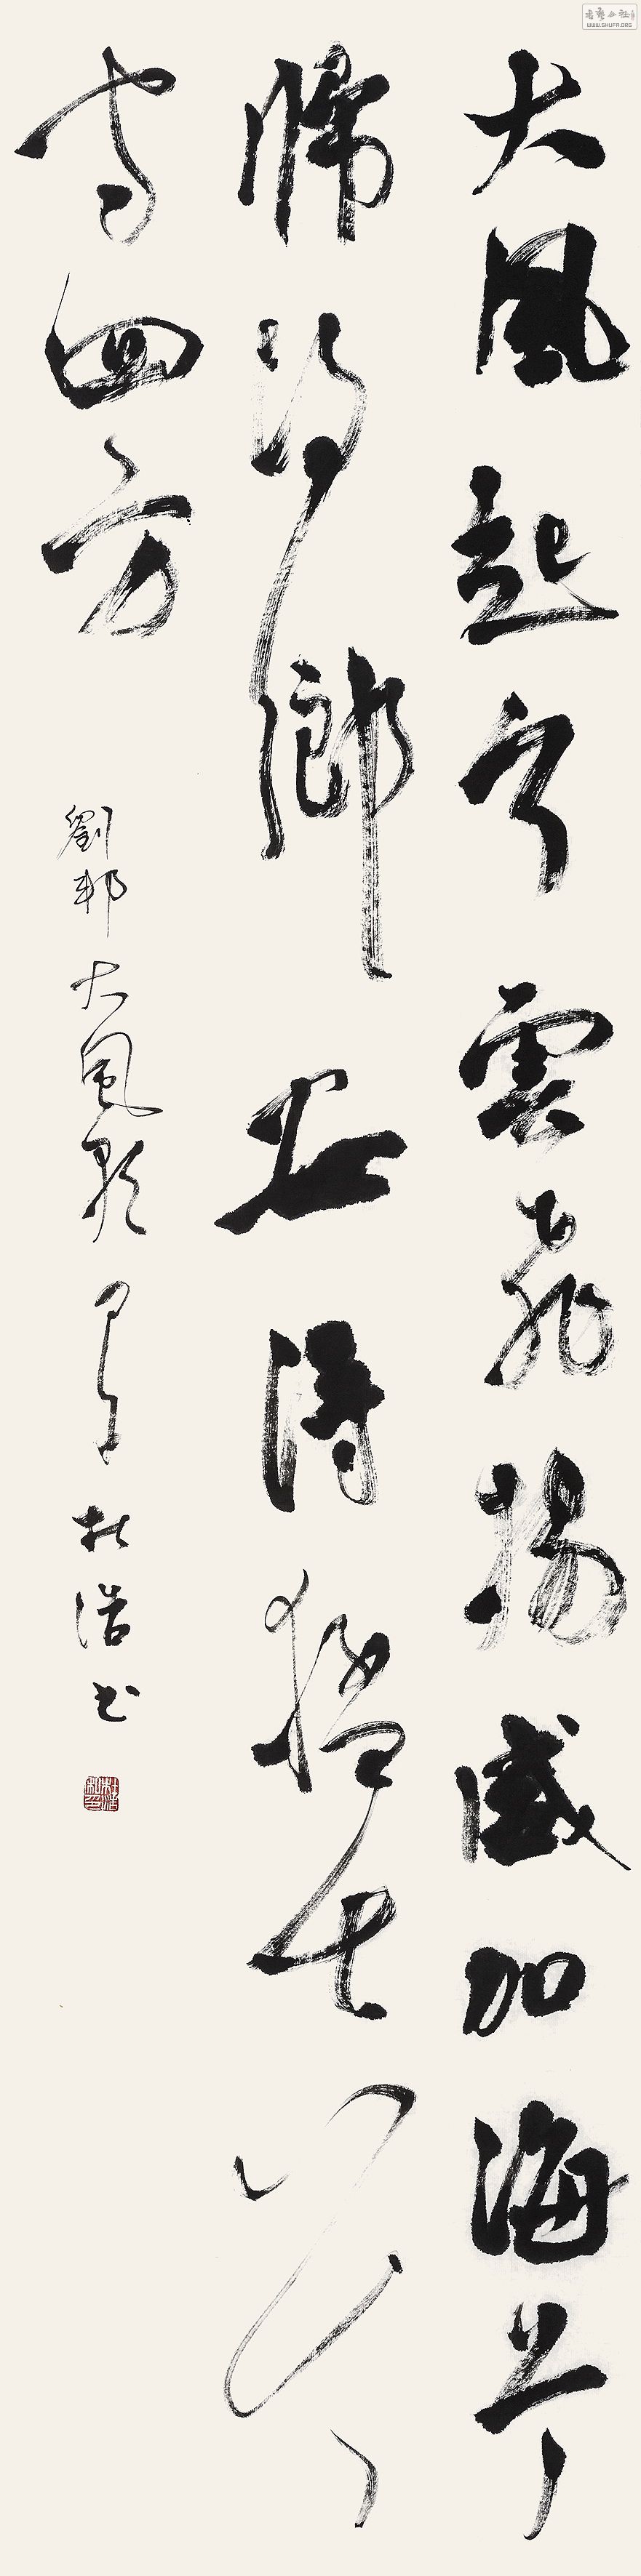 大風起兮雲飛揚威加海兮
歸故鄉安得猛士兮
守四方
劉邦大風歌 杜浩書
杜浩私印
WWW.SHUFA.ORG